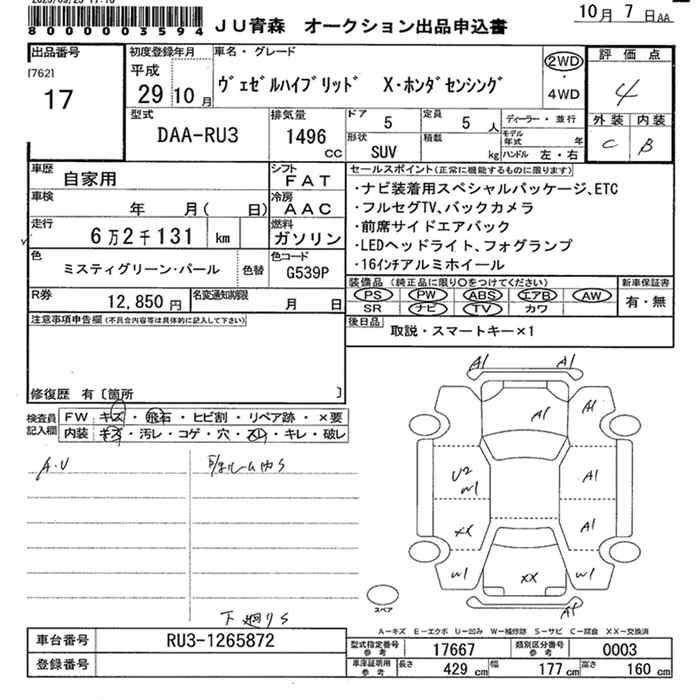 80000003594
JU青森 オークション出品申込書
10月 7日AA
出品番号
[762]
17
初度登録年月
平成
29 10月
車名・グレード
ヴェゼルハイブリッド X・ホンダセンシング
2WD
・
4WD
評価点
4
外装 内装
C B
型式
DAA-RU3
排気量
1496
CC
ドア 5
定員 5 人
ディーラー・並行
形状
SUV
積載
kg
モデル年式 年
ハンドル 左・右
車歴
自家用
シフト
FAT
車検
年 月( 日)
冷房
AAC
走行
6万2千131 km
燃料
ガソリン
色
ミスティグリーン・パール
色替
色コード
G539P
R券
12,850 円
名変通知期限
月 日
セールスポイント(正常に機能するものに限ります)
・ナビ装着用スペシャルパッケージ、ETC
・フルセグTV、バックカメラ
・前席サイドエアバック
・LEDヘッドライト、フォグランプ
・16インチアルミホイール
装備品 (純正品に限り○をつけてください)
PS PW ABS エアB AW
SR ナビ TV カワ
新車保証書
有・無
後日品
取説・スマートキー×1
注意事項申告欄(不具合内容等は具体的に記入して下さい)
修復歴 有〔箇所 〕
検査員
記入欄
FW キズ・飛石・ヒビ割・リペア跡・×要
内装 キズ・汚レ・コゲ・穴・スレ・キレ・破レ
A.V
ルーム内S
下廻りS
A1 A1
A1 A1
U2
W1
A1
XX A1
W1 XX W1
A1
スペア
A-キズ E-エクボ U-凹み W-補修跡 S-サビ C-腐食 XX-交換済
車台番号
RU3-1265872
登録番号
型式指定番号
参考
17667
類別区分番号
参考
0003
車庫証明用
参考
長さ 429 cm 幅 177 cm 高さ 160 cm